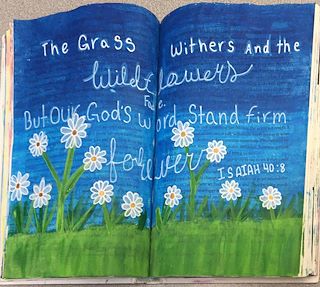 The Grass Withers And the
Wildflowers
Fade.
But Our God's Word Stand firm
forever
ISAIAH 40:8